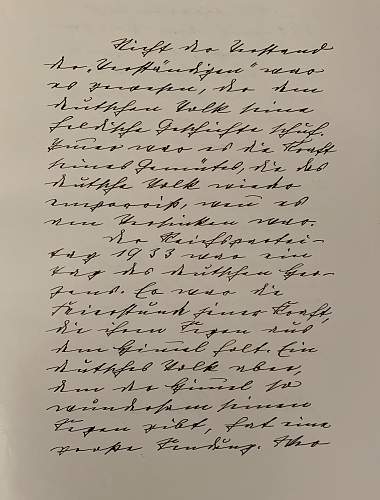 Nicht der Verstand
der „Verständigen“ war
es gewesen, der dem
deutschen Volk seine
heldische Geschichte schuf.
Immer war es die Kraft
seines Gemütes, die das
deutsche Volk wieder
emporriß, wenn es
am Versinken war.
Der Reichspartei-
tag 1933 war ein
Tag des deutschen Her-
zens. Es war die
Feierstunde jener Kraft,
die ihren Segen aus
dem Himmel holt. Ein
deutsches Volk aber,
dem der Himmel so
wundersam seinen
Segen gibt, hat eine
große Sendung.